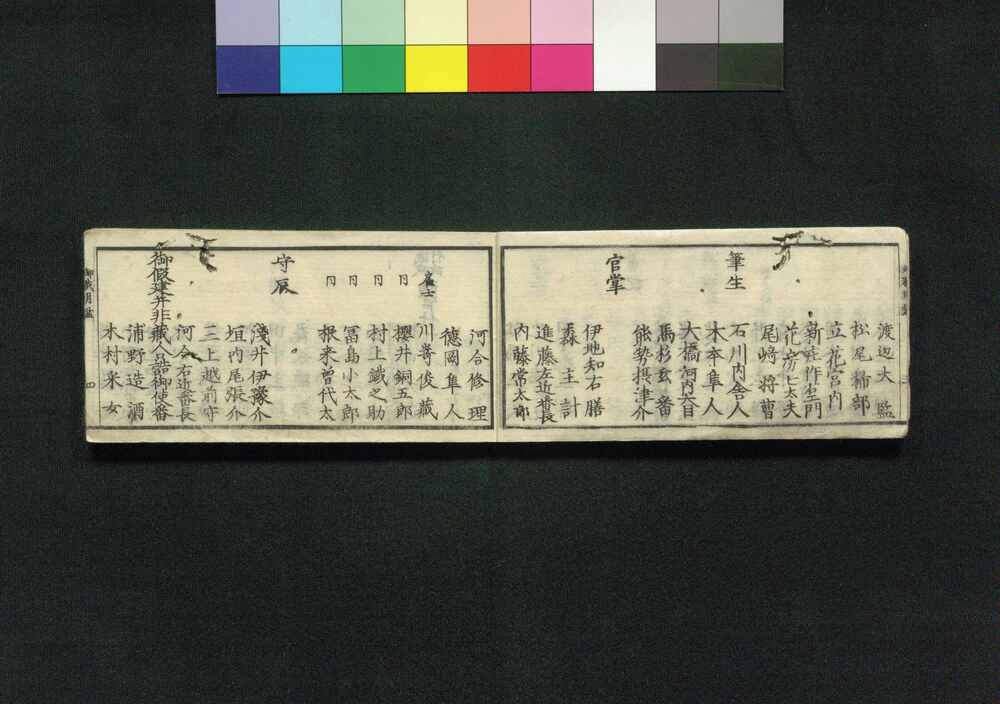 渡辺大監
松尾織部
立花宮内
新莊作左衛門
花房七太夫
尾﨑将曹
筆生
石川内舎人
木本隼人
大橋河内大目
馬杉玄番
能勢摂津介
官掌
伊地知右膳
森主計
進藤左近番長
内藤常太郎
河合修理
德岡隼人
雇士
川嵜俊藏
同
櫻井銅五郎
同
村上鐵之助
同
冨島小太郎
同
根来曽代太
守辰
淺井伊豫介
垣内尾張介
三上越前守
河合右近番長
御假建并非藏人品御使番
浦野造酒
木村釆女
四